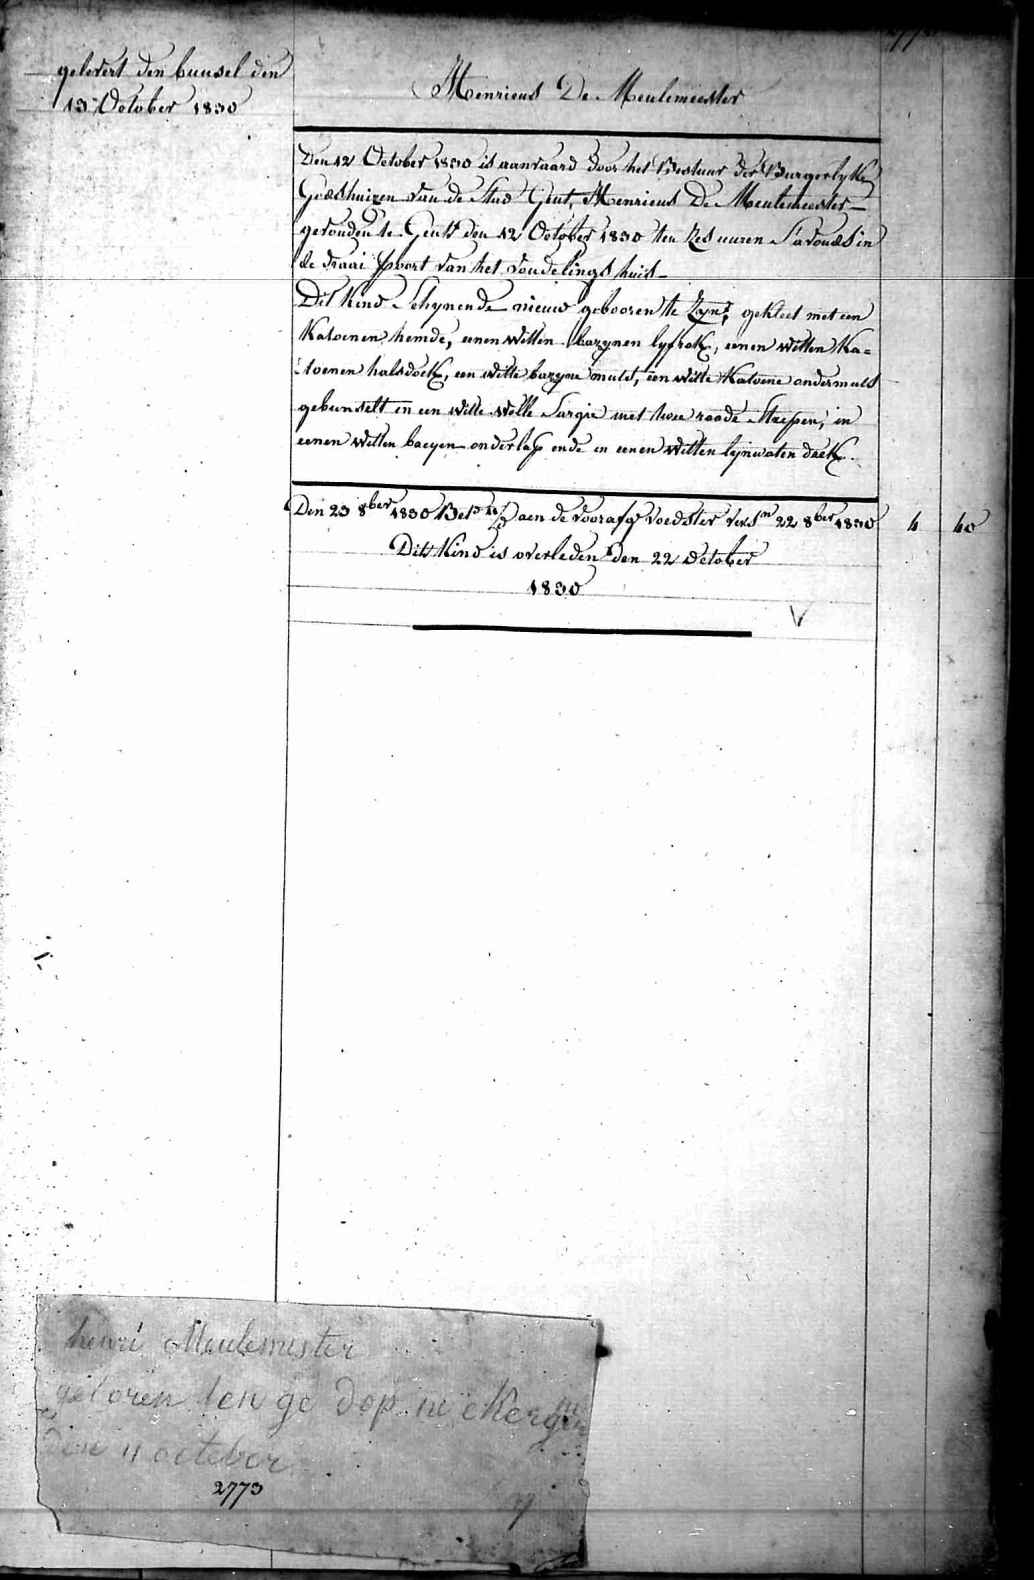 gelevert den bunsel den
13 October 1830
Henricus De Meulemeester
Den 12 October 1830 is aanvaard door het Bestuur der Burgerlyke
Godshuizen van de Stad Gent, Henricus De Meulemeester
gevonden te Gent den 12 October 1830 ten zes uuren S'avonds in
de draai poort van het vondelings huis
Dit Kind Schynende nieuw gebooren te Zyn, gekleet met een
Katoenen hemde, eenen witten bazynen lyfrok, eenen witten Ka=
toenen halsdoek, een witte bazyne muts, een witte Katoene ondermuts
gebunselt in een witte wolle Sargie met twee roode Strepen, in
eenen witten baeyen onderlap ende in eenen witten lynwaten doek
Den 23 8ber 1830 aen de voorafg voedster vers 22 8ber 1830 4 40
Dit Kind is overleden den 22 October
1830
henri Meulemester
geboren en ge dop in
den 11 october
2773